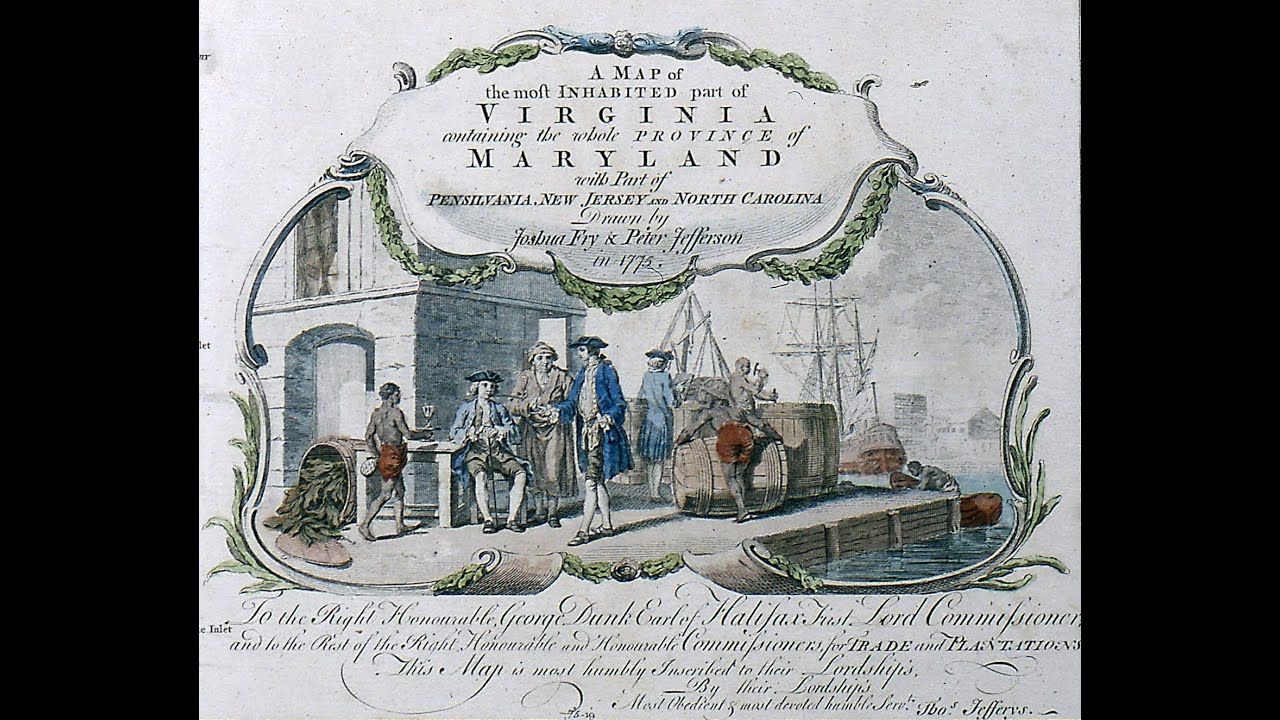 A MAP of
the most INHABITED part of
VIRGINIA
containing the whole PROVINCE of
MARYLAND
with Part of
PENSILVANIA, NEW JERSEY AND NORTH CAROLINA
Drawn by
Joshua Fry & Peter Jefferson
in 1775.
let
Inlet
To the Right Honourable, George Dunk Earl of Halifax First Lord Commissioner,
and to the Rest of the Right Honourable and Honourable Commissioners, for TRADE and PLANTATIONS
This Map is most humbly Inscribed to their Lordship's,
By their Lordship's
Most Obedient & most devoted humble Servt. Thos. Jefferys.